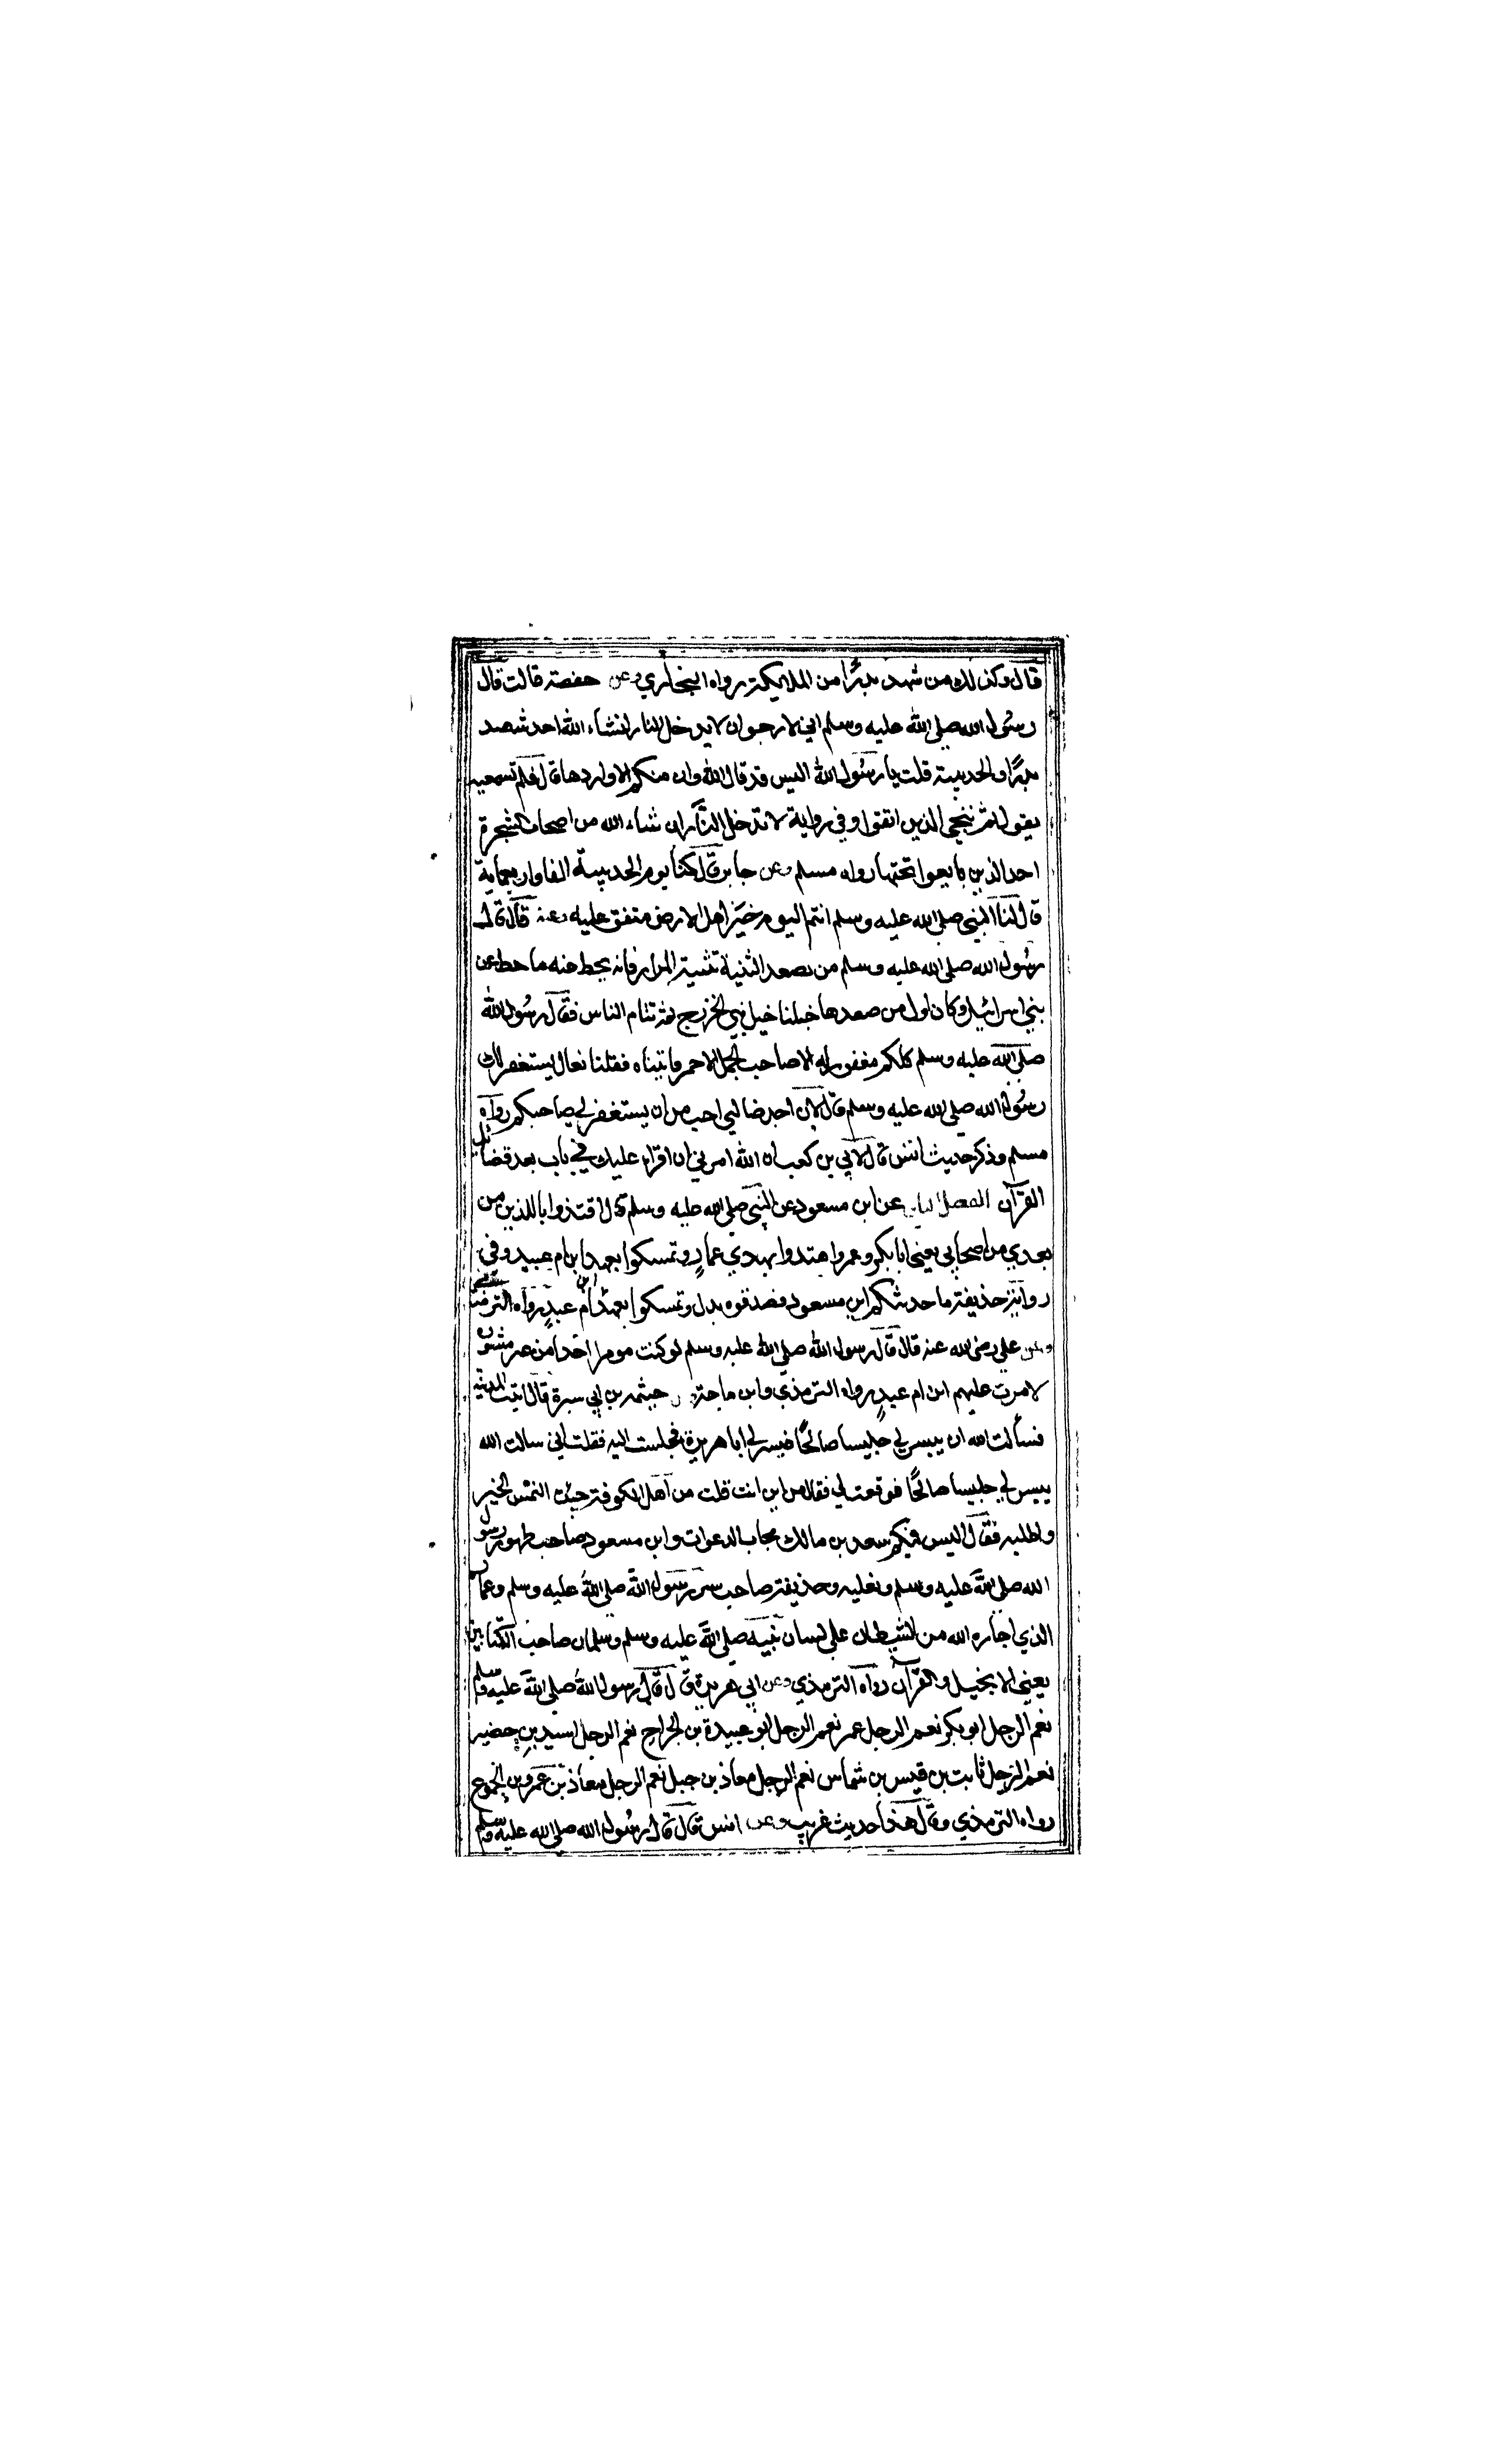 قال وكذلك من شهد بدرًا من الملايكة رواه البخاري وعن حفصة قالت قال
رسُول الله صلى الله عليه وسلم اني لارجو ان لا يدخل النار انشاء الله احد شهد
بدرًا والحديبية قلت يا رسُول الله اليس قد قال الله وان منكم الا واردها قال فلم تسمعيه
يقول ثم ننجي الذين اتقوا وفي رواية لا تدخل النار ان شاء الله من اصحاب الشجرة
احد الذين بايعوا تحتها رواه مسلم وعن جابر قال كنا يوم الحديبية الفا واربعماية
قال لنا النبي صلى الله عليه وسلم انتم اليوم خير اهل الارض متفق عليه وعنه قال قال
رسُول الله صلى الله عليه وسلم من يصعد الثنية ثنية المرار فانه يحط عنه ما حط عن
بني اسرائيل وكان اول من صعدها خيلنا خيل بني الخزرج ثم تتام الناس فقال رسُول الله
صلى الله عليه وسلم كلكم مغفور له الا صاحب الجمل الاحمر فاتيناه فقلنا تعال يستغفر لك
رسُول الله صلى الله عليه وسلم قال لان اجد ضالتي احب من ان يستغفر لي صاحبكم رواه
مسلم وذكر حديث انس قال لابي بن كعب ان الله امرني ان اقراء عليك في باب بعد فضائل
القرآن الفصل الثاني عن ابن مسعود عن النبي صلى الله عليه وسلم قال اقتدوا باللذين من
بعدي من اصحابي يعني ابا بكر وعمر واهتدوا بهدي عمارٍ وتمسكوا بعهد ابن ام عبيد وفي
رواية حذيفة ما حدثكم ابن مسعود فصدقوه بدل وتمسكوا بعهد ابن ام عبدٍ رواه الترمذي
وعن علي رضي الله عنه قال قال رسول الله صلى الله عليه وسلم لو كنت مومرا احدا من غير مشورة
لامرت عليهم ابن ام عبدٍ رواه الترمذي وابن ماجة وعن خيثمة بن ابي سبرة قال اتيت المدينة
فسألت الله ان ييسر لي جليسا صالحًا فيسر لي ابا هريرة فجلست اليه فقلت اني سالت الله
ييسر لي جليسا صالحًا فوقعت لي فقال من اين انت قلت من اهل الكوفة جئت التمس الخير
واطلبه فقال اليس فيكم سعد بن مالك مجاب الدعوات وابن مسعود صاحب طهور رسول
الله صلى الله عليه وسلم ونعليه وحذيفة صاحب سر رسول الله صلى الله عليه وسلم وعمار
الذي اجاره الله من الشيطان على لسان نبيه صلى الله عليه وسلم وسلمان صاحب الكتابين
يعني الانجيل والقرآن رواه الترمذي وعن ابي هريرة قال قال رسول الله صلى الله عليه وسلم
نعم الرجل ابو بكر نعم الرجل عمر نعم الرجل ابو عبيدة بن الجراح نعم الرجل اسيد بن حضير
نعم الرجل ثابت بن قيس بن شماس نعم الرجل معاذ بن جبل نعم الرجل معاذ بن عمرو بن الجموح
رواه الترمذي وقال هذا حديث غريب وعن انس قال قال رسُول الله صلى الله عليه وسلم